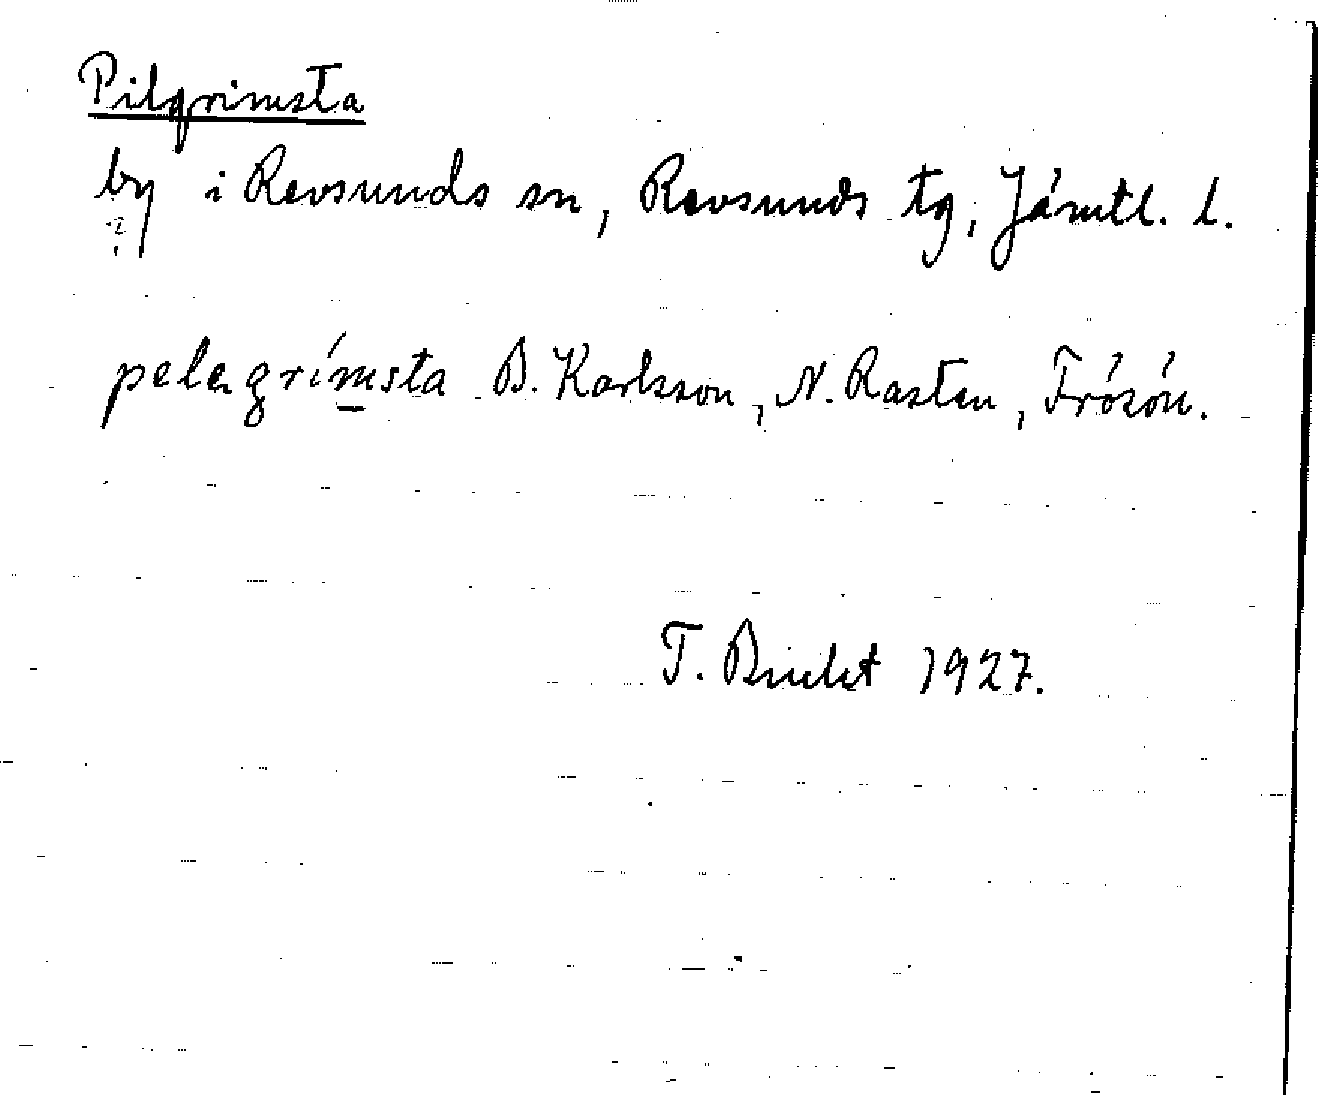 Pilgrimsta
by i Revsunds sn, Revsunds tg, Jämtl. l.
pelegrímsta B. Karlsson, N. Rasten, Frösön.
T. Bucht 1927.